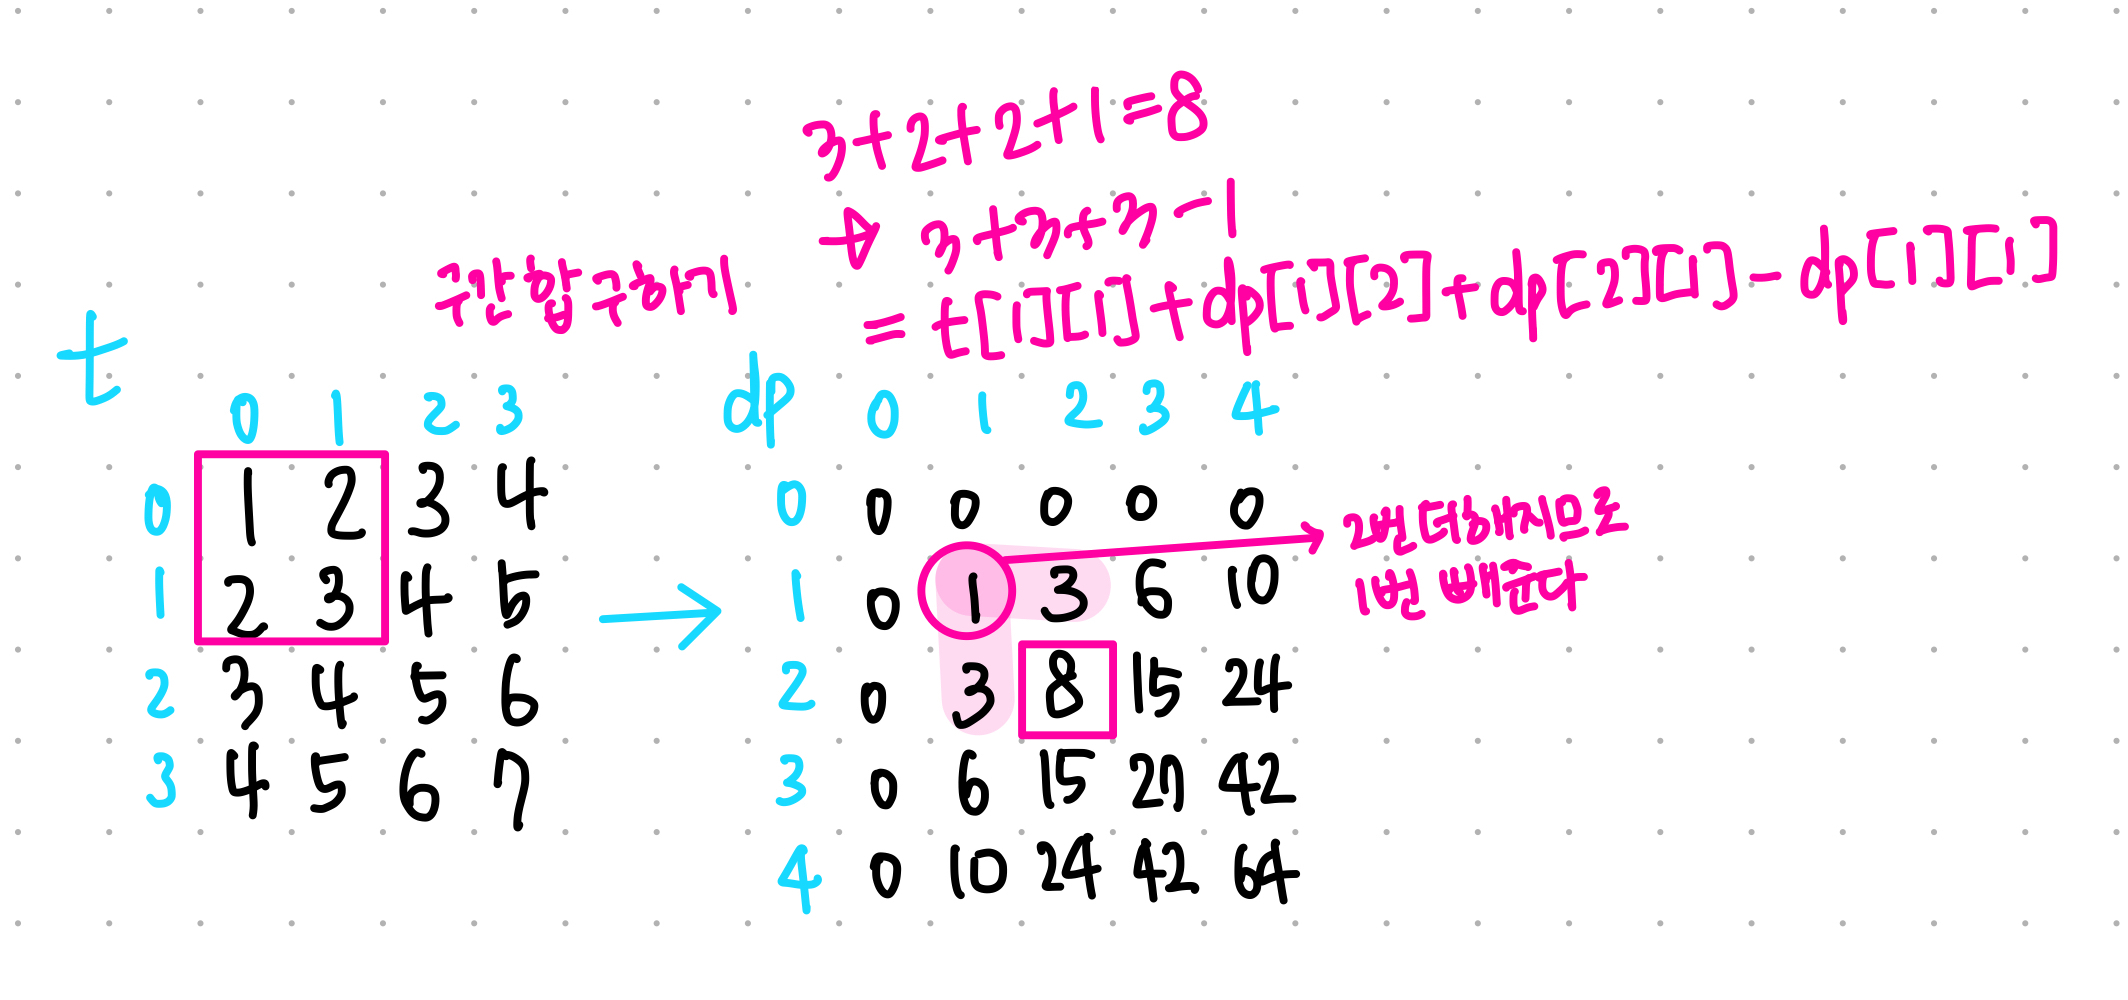 3+2+2+1=8
→ 3+3+3-1
구간합 구하기
= t[1][1]+dp[1][2]+dp[2][1]-dp[1][1]
t
0 1 2 3
0 1 2 3 4
1 2 3 4 5
2 3 4 5 6
3 4 5 6 7
→
dp 0 1 2 3 4
0 0 0 0 0 0
1 0 1 3 6 10
2 0 3 8 15 24
3 0 6 15 27 42
4 0 10 24 42 64
2번 더해지므로
1번 빼준다